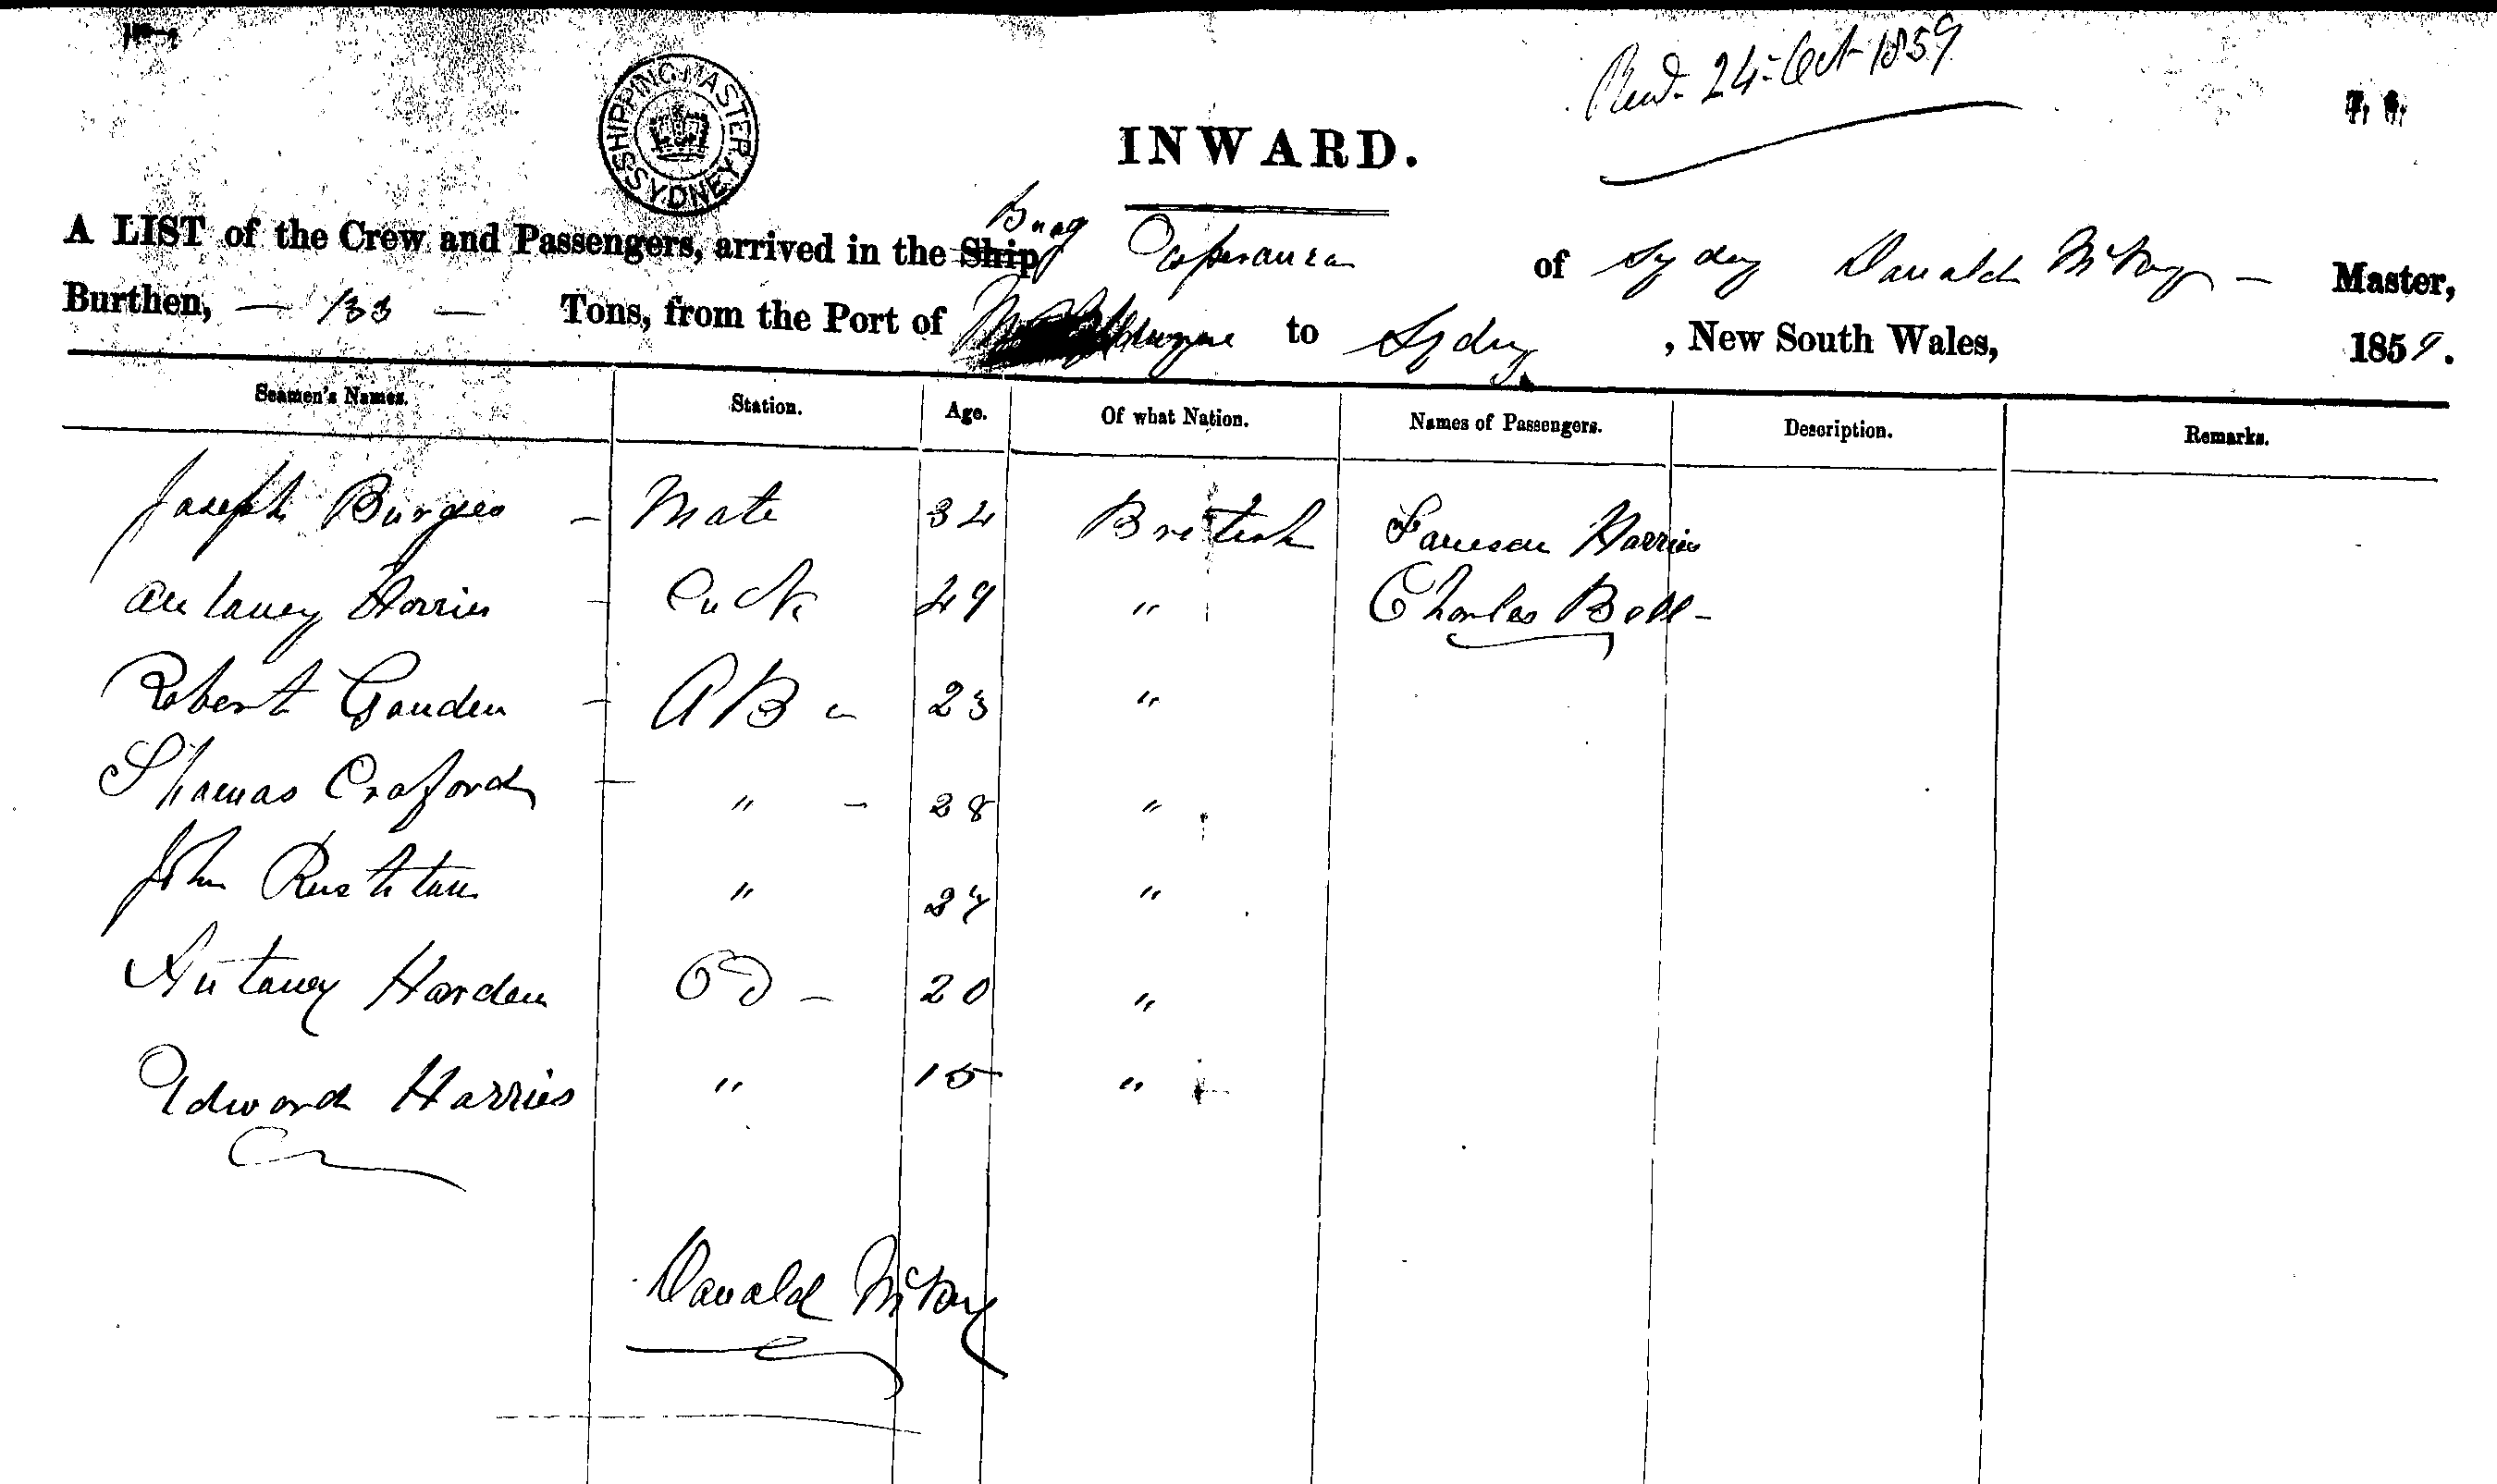 Recd. 24 Oct 1859
SHIPPING MASTER SYDNEY
INWARD.
Brig
A LIST of the Crew and Passengers, arrived in the Ship Esperanza of Sydney Donald McKay — Master,
Burthen, — 133 — Tons, from the Port of Melbourne to Sydney, New South Wales, 1859.
Seamen's Names. Station. Age. Of what Nation. Names of Passengers. Description. Remarks.
Joseph Burges — Mate 34 British Harries
Antaney Harries — Cuck 49 " Charles Bell —
Robert Gouden — AB 23 "
Thomas Craford — " — 28 "
John " 27 "
Antaney Harden OD — 20 "
Edward Harries " 15 "
Donald McKay